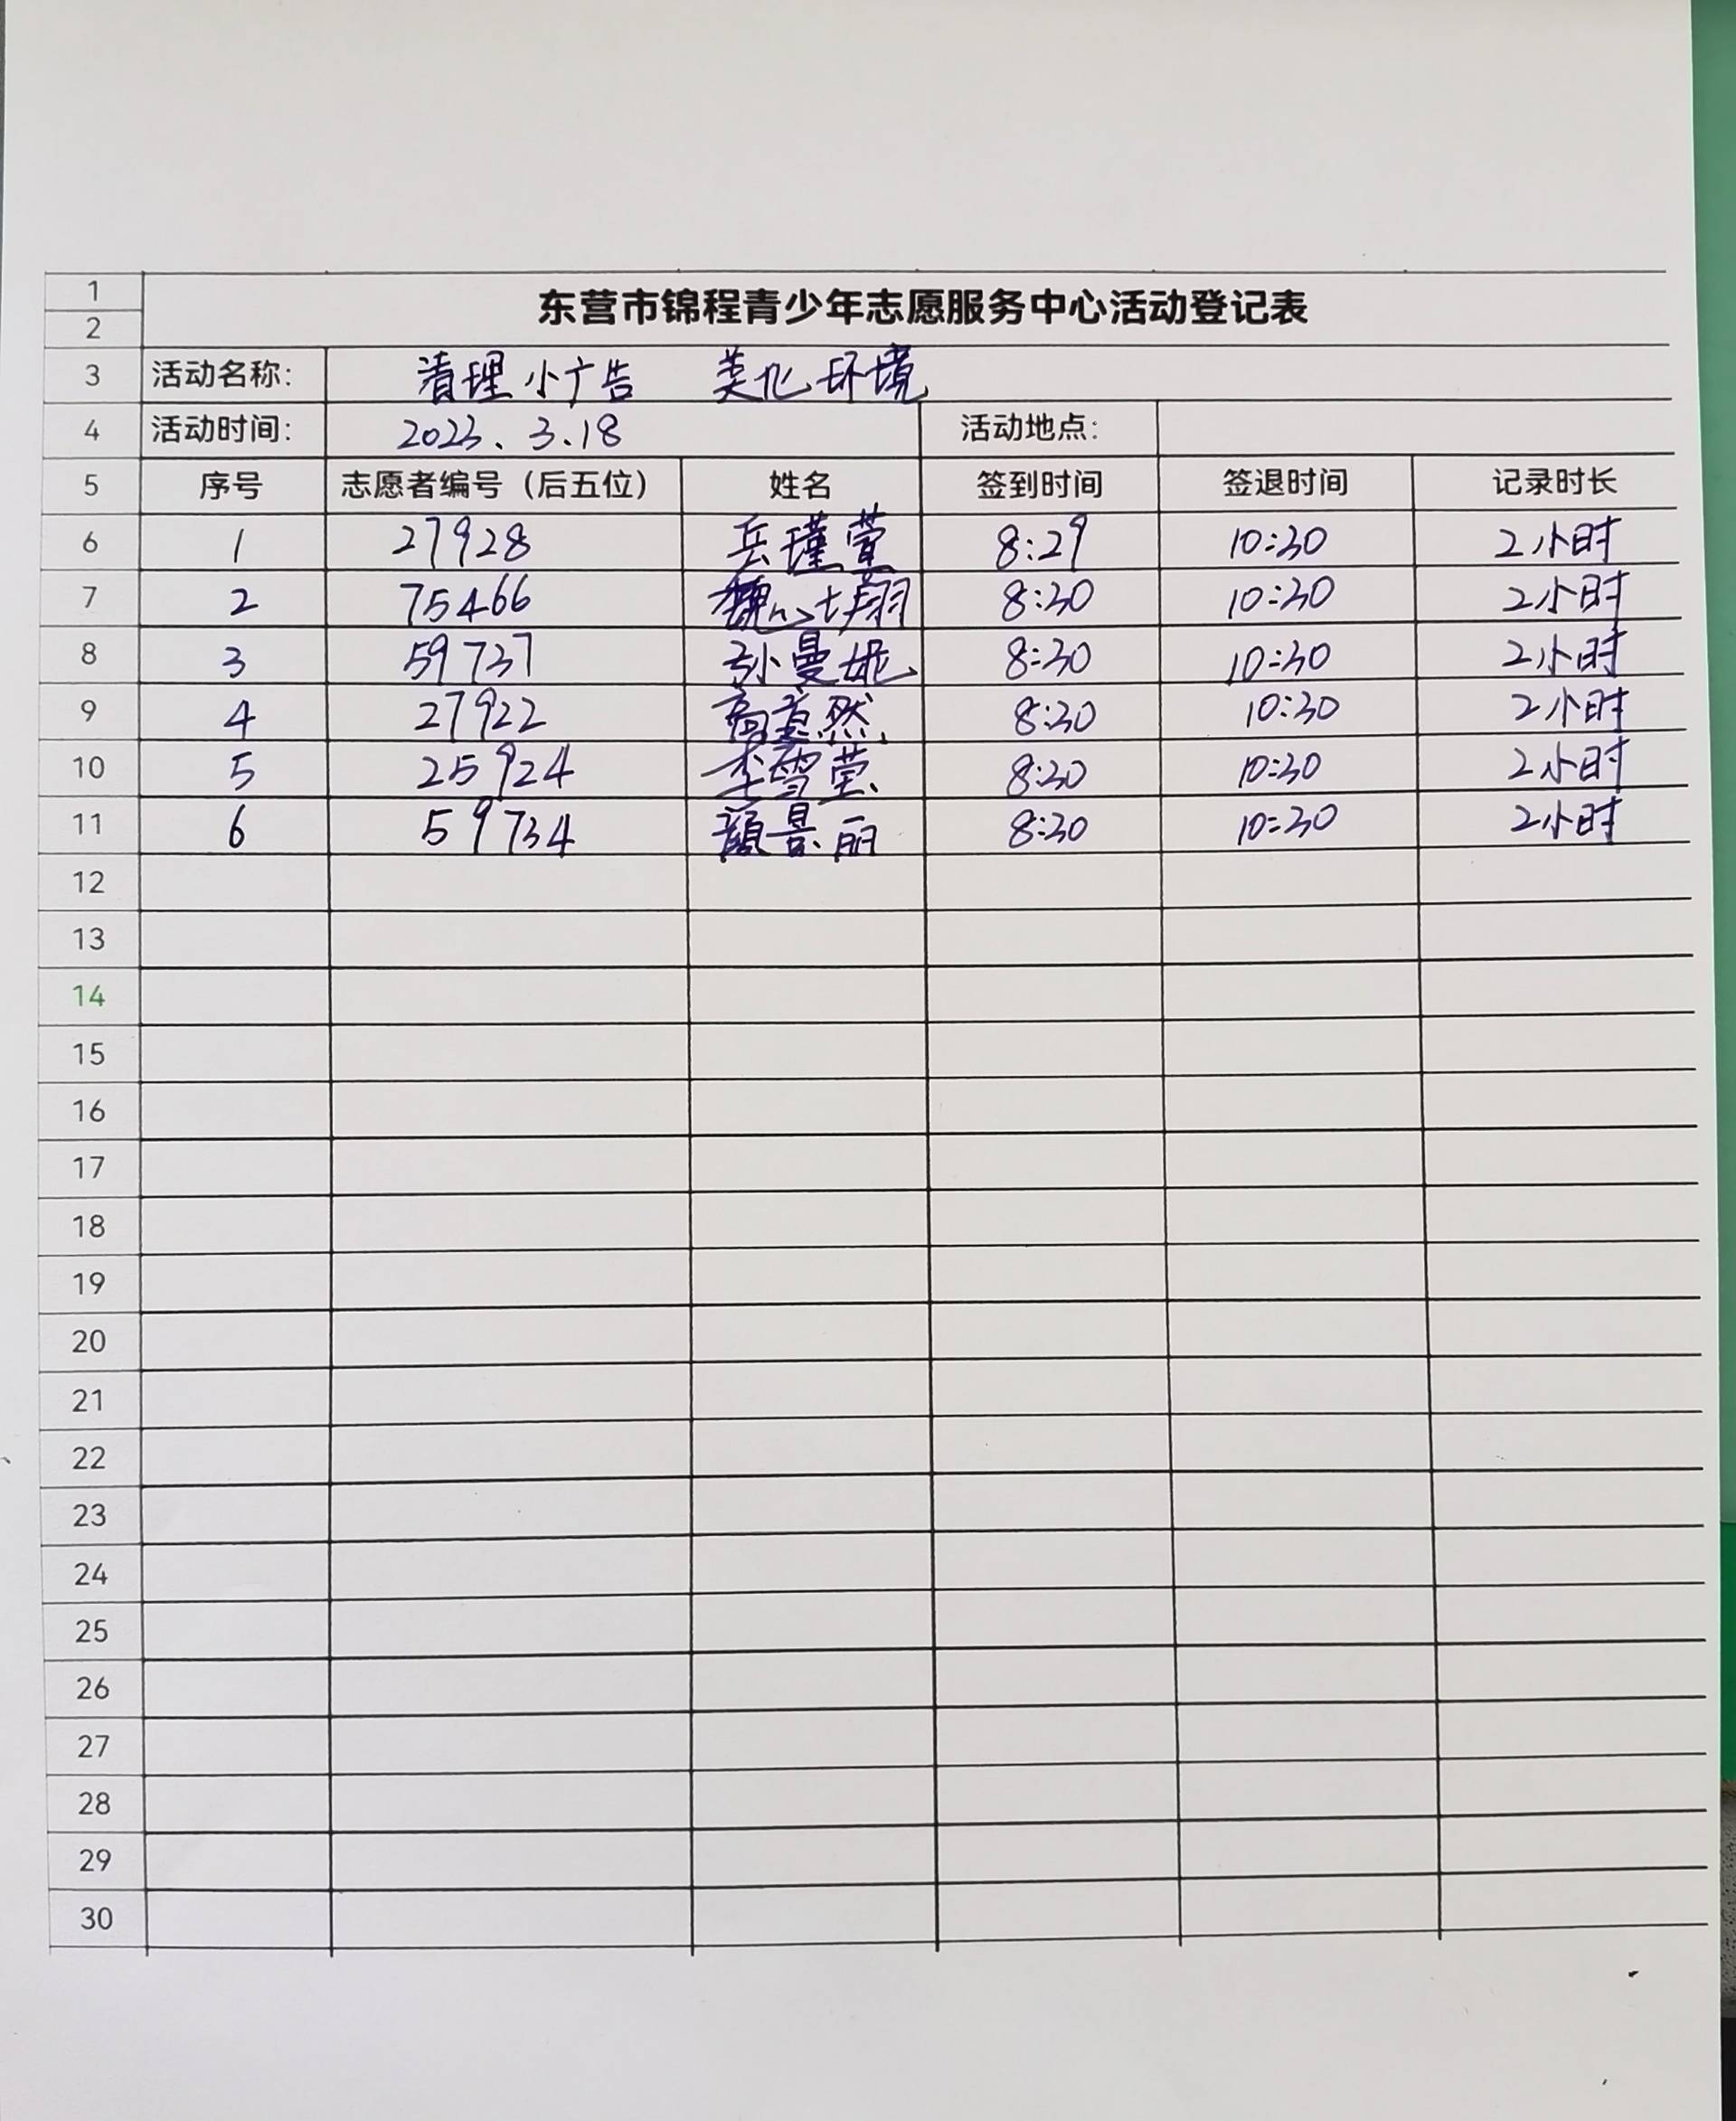 1
2
东营市锦程青少年志愿服务中心活动登记表
3 活动名称: 清理小广告 美化环境
4 活动时间: 2023.3.18 活动地点:
5 序号 志愿者编号（后五位） 姓名 签到时间 签退时间 记录时长
6 1 27928 兵瑾萱 8:29 10:30 2小时
7 2 75466 魏 翔 8:30 10:30 2小时
8 3 59737 孙曼 8:30 10:30 2小时
9 4 27922 高 然 8:30 10:30 2小时
10 5 25924 李雪莹 8:30 10:30 2小时
11 6 59734 颜景丽 8:30 10:30 2小时
12
13
14
15
16
17
18
19
20
21
22
23
24
25
26
27
28
29
30